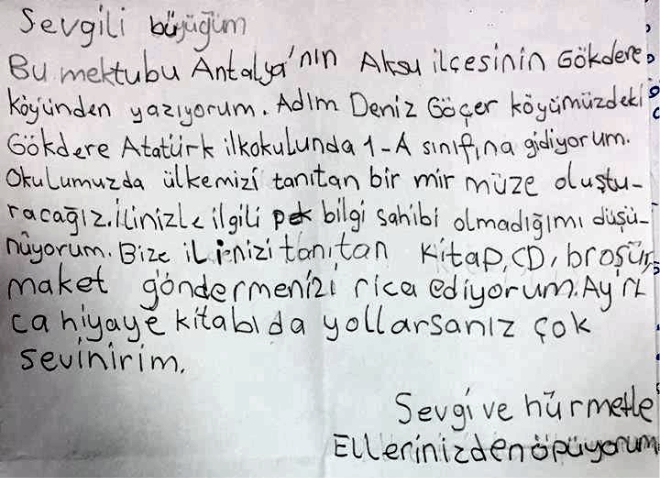 Sevgili büyüğüm
Bu mektubu Antalya'nın Aksu ilçesinin Gökdere
köyünden yazıyorum. Adım Deniz Göçer köyümüzdeki
Gökdere Atatürk ilkokulunda 1-A sınıfına gidiyorum.
Okulumuzda ülkemizi tanıtan bir mir müze oluştu-
racağız. İlinizle ilgili pek bilgi sahibi olmadığımı düşü-
nüyorum. Bize iLinizi tanıtan kitap, CD, broşür,
maket göndermenizi rica ediyorum. Ayrı
ca hiyaye kitabı da yollarsanız çok
sevinirim.
Sevgi ve hürmetle
Ellerinizden öpüyorum